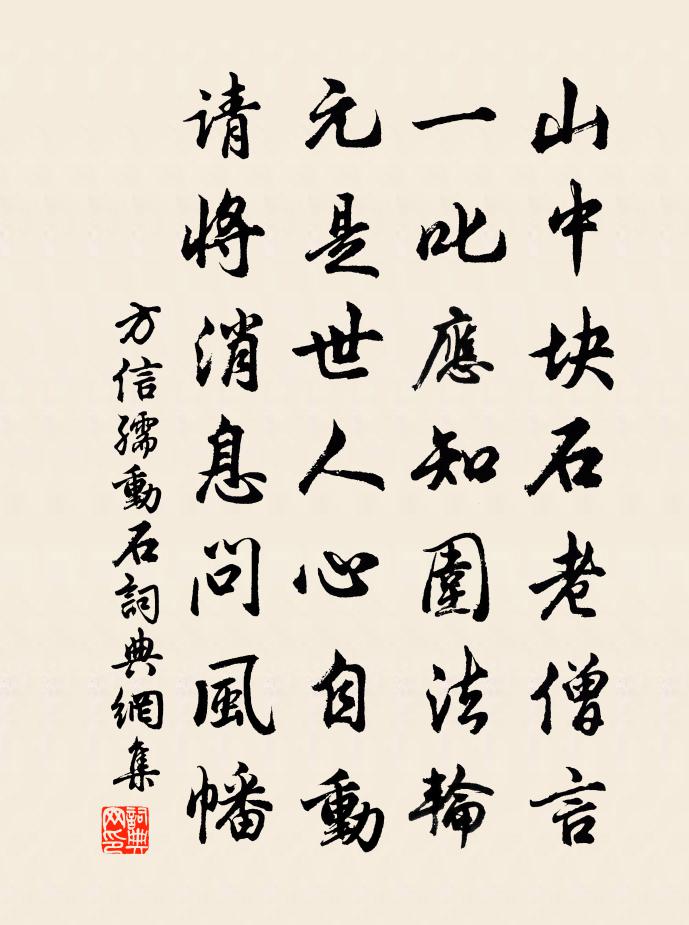 山中块石老僧言
一叱應知圍法輪
元是世人心自動
请將消息问風幡
方信孺動石詞典網集
詞典网印